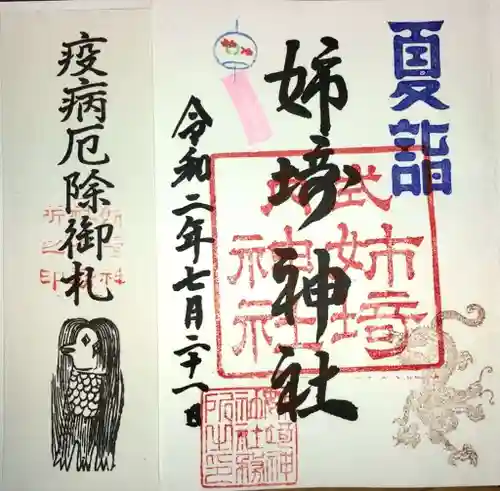 夏詣
姉埼神社
令和二年七月二十一日
式内
姉埼
神社
疫病厄除御札